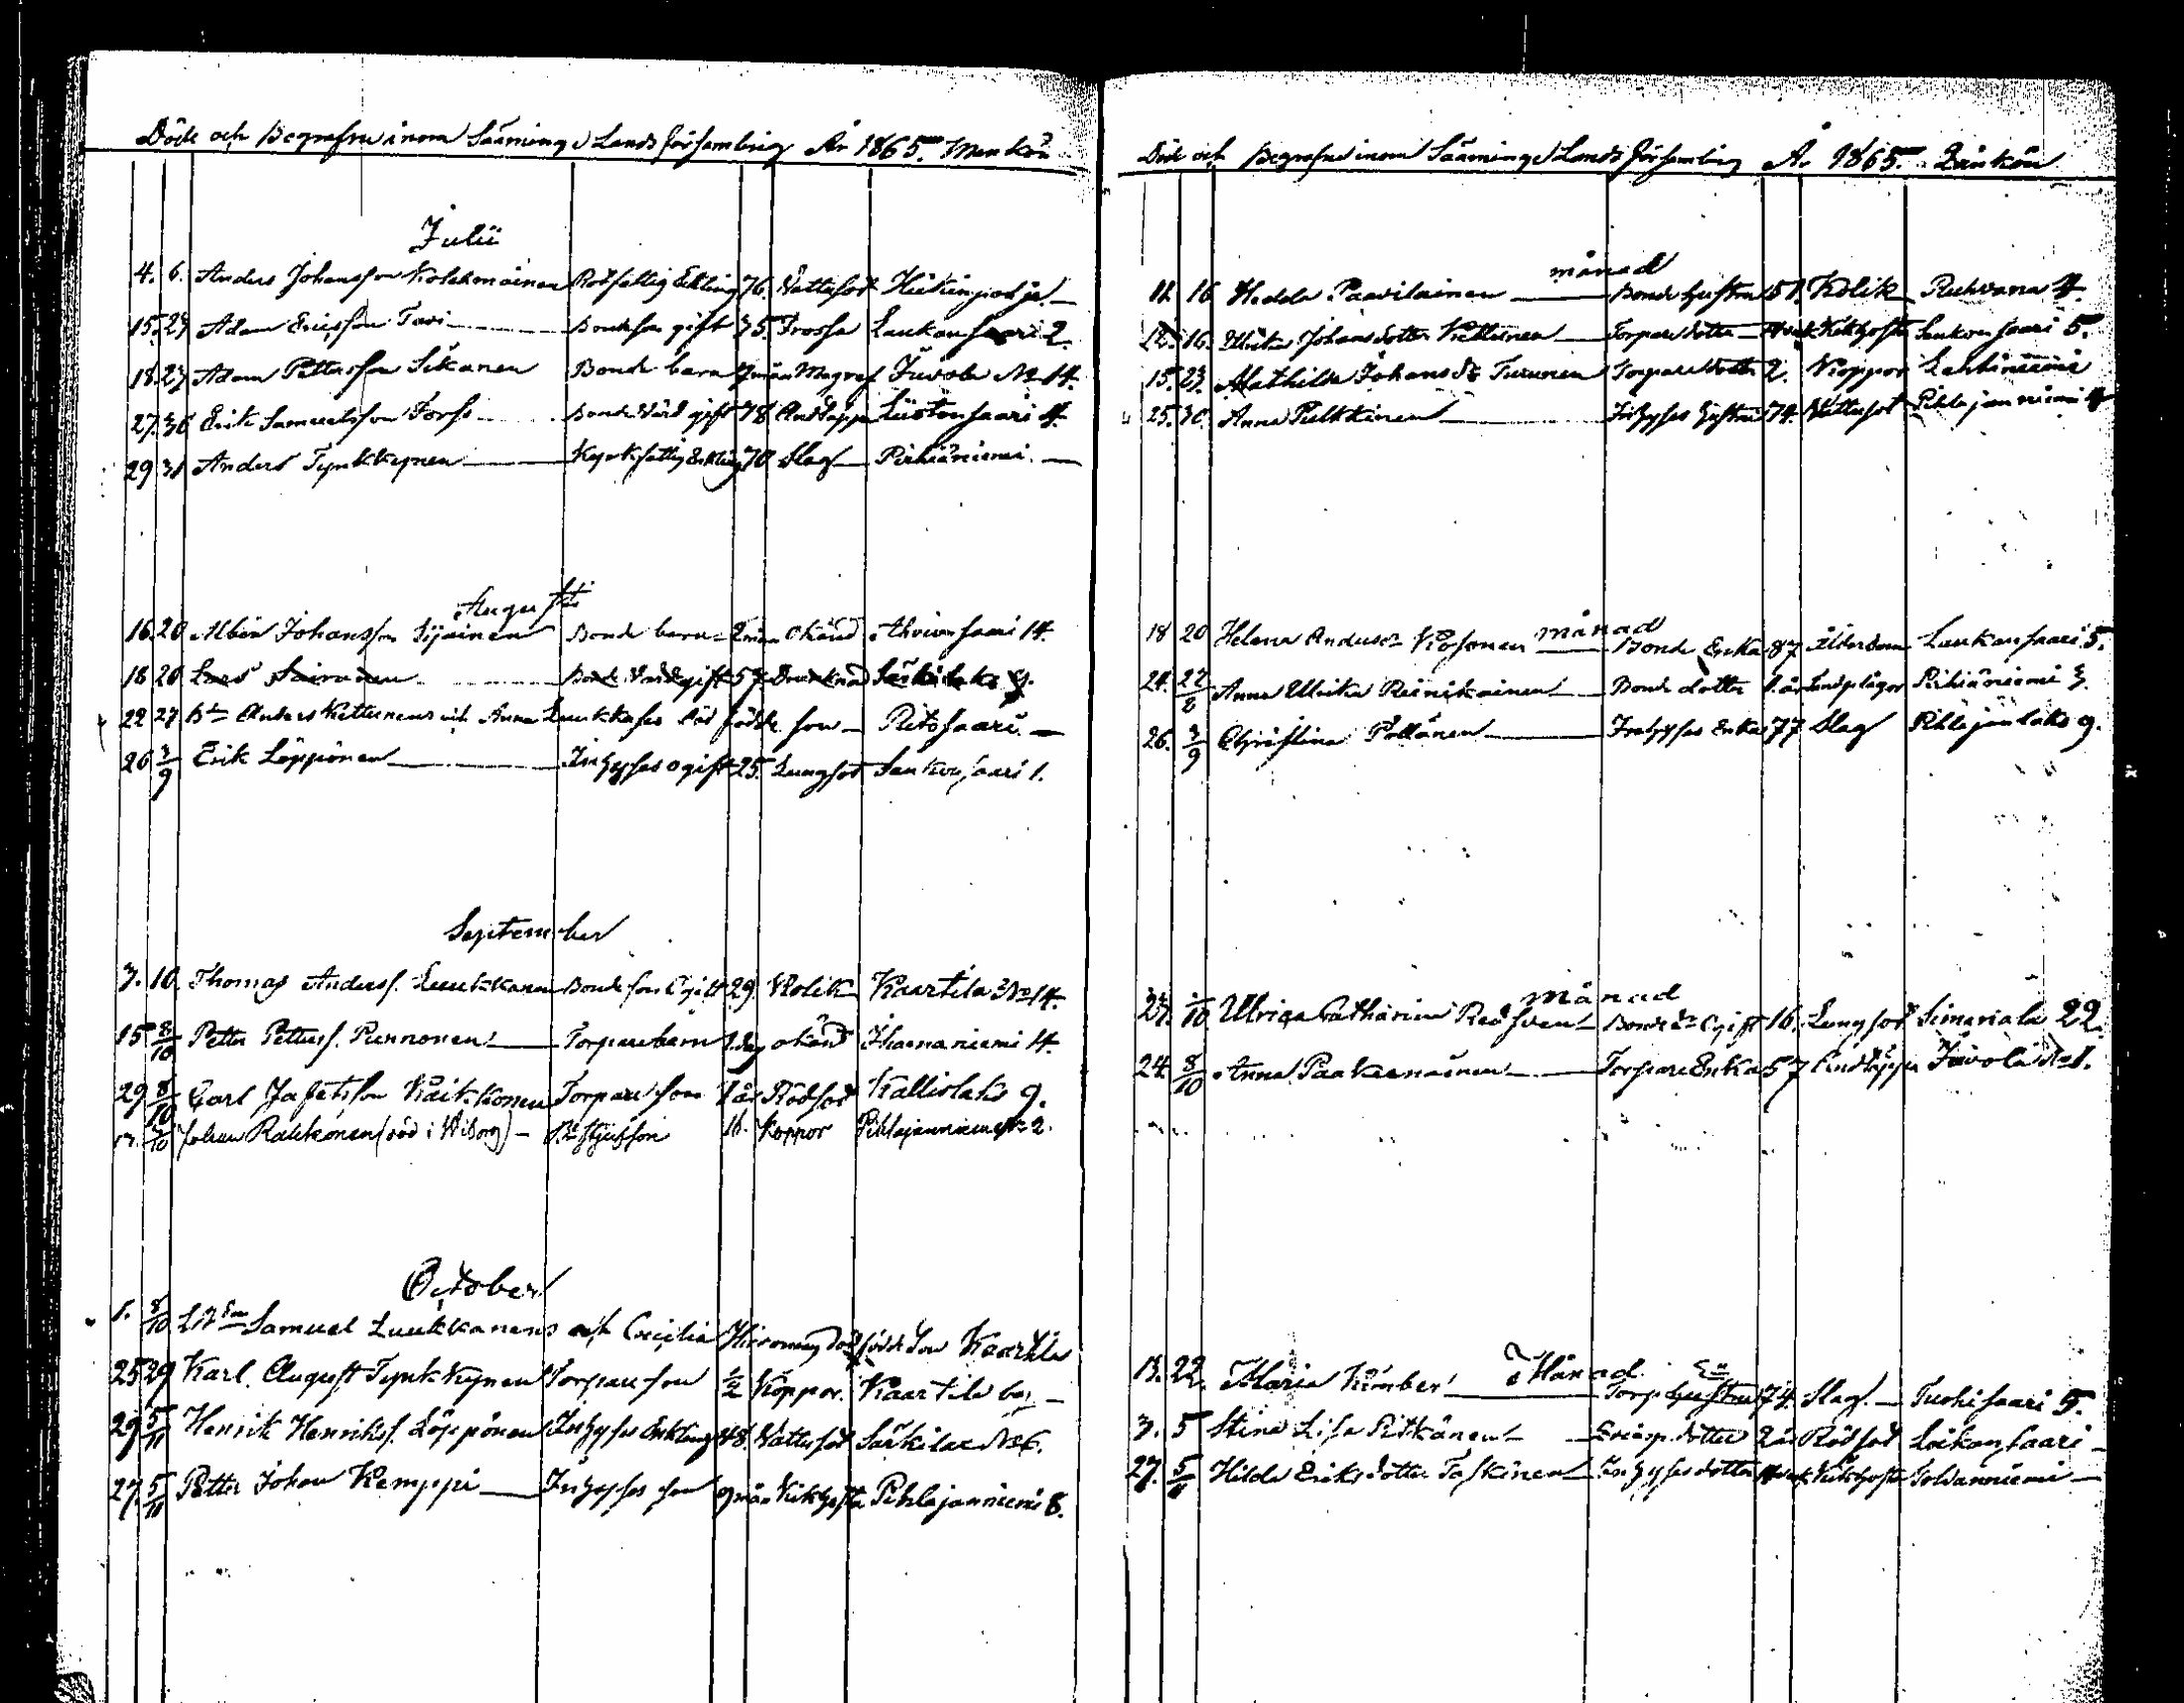 Döde och Begrafne inom Sääminge Lands församling År 1865. Mankön
Julii
4. 6. Anders Johansson Kolehmainen Rotfattig Enkling 76. Vattusot Heikinpohja —
15. 23 Adam Ericsson Tavi Bondeson gift 35. Frossa Laukansaari 2.
18. 23 Adam Pettersson Sikanen Bonde barn 7 mån Magref Juvola No 14.
27. 30 Erik Samuelsson Torf Bonde Värd gift 78 Andtäppa Liistonsaari 4.
29 31 Anders Tynkkynen Kyrkfattig Enkling 70 Slag Pirhiäniemi —
Augusti
16 20 Albin Johansson Sijainen Bonde barn 2 mån okänd Ahvionsaari 14.
18 20 Lars Sairanen Bonde Värd gift 57 Drunknad Särkilaks 9.
22 27 Bdn Anders Kettunens och Anna Luukkases död födde son — Pitosaari —
26 3/9 Erik Löppönen Inhyses ogift 25. Lungsot Laukansaari 1.
September
3. 10. Thomas Anders. Luukkanen Bonde son Ogift 29. Kolik Kaartila No 14.
15 8/10 Petter Petters. Punnonen Torpare barn 1. dag okänd Ihamaniemi 14.
29 8/10 Carl Jafetsson Kaikkonen Torpare son 1 år Rödsot Kallislaks 9.
17. /10 Johan Rahkonen (död i Wiborg) — 16. Koppor Pihlajaniemi No 2.
October
1. 8/10 Samuel Luukkanens och Cecilia Hirvonens död födde son Kaartila
25 29 Karl August Tynkkynen Torpare son 1/2 Koppor. Kaartila by —
29 5/11 Henrik Henriks. Löppönen Inhyses Enkling 48. Vattusot Särkilax No 6.
27. 5/11 Petter Johan Kemppi Inhyses son 9 mån Kikhosta Pihlajaniemi 8.
Döde och Begrafne inom Sääminge Lands församling År 1865. Qvinkön
månad
11. 16 Hedda Paavilainen Bonde hustru 51. Kolik Ruhvana 4.
12. 16. Ulrika Johansdotter Kettunen Torpare dotter Kikhosta Laukansaari 5.
15. 23. Mathilda Johansdr Turunen Torpare dotter 2. Koppor Lahtiniemi
25. 30. Anna Pulkkinen Inhyses hustru 74. Vattusot Pihlajaniemi 4
månad
18 20 Helena Andersdr Kosonen Bonde Enka 87 Ålderdom Laukansaari 5.
24. 27/8 Anna Ulrika Reinikainen Bonde dotter 1. år Tandplågor Pirhiäniemi 3.
26. 3/9 Christina Pöllänen Inhyses Enka 77 Slag Pihlajanlaks 9.
månad
27. 1/10 Ulrica Catharina Redsven Bonde dr Ogift 16. Lungsot Simanala 22.
24. 8/10 Anna Paakkunainen Torpare Enka 57 Andtäppa Juvola No 1.
Månad
13. 22. Maria Kimber Torp hustru 74. Slag. — Tuohisaari 5.
3. 5 Stina Lisa Pitkänen dotter 2 år Rödsot Loikansaari —
27. 5/11 Hilda Eriksdotter Taskinen Inhyses dotter Kikhosta Tolvanniemi —